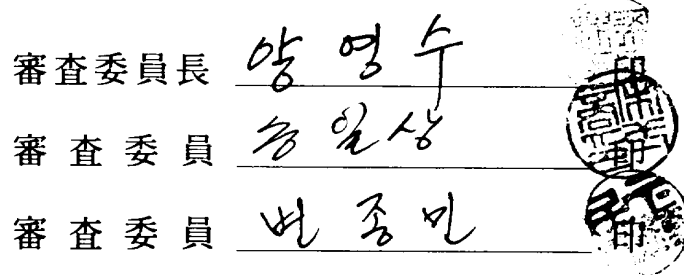 審査委員長 양영수 印
審査委員 송일상 印
審査委員 변종민 印